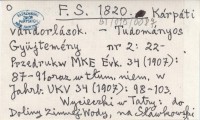 F. S. 1820. Kárpáti
vándorlások. - Tudományos
Gyüjtemény nr 2: 22-
Przedruk w MKE Évk. 34 (1907):
87-91 oraz w tłum. niem. w
Jahrb. UKV 34 (1907): 98-103.
Wycieczki w Tatry: do
Doliny Zimnej Wody, na Sławkowski